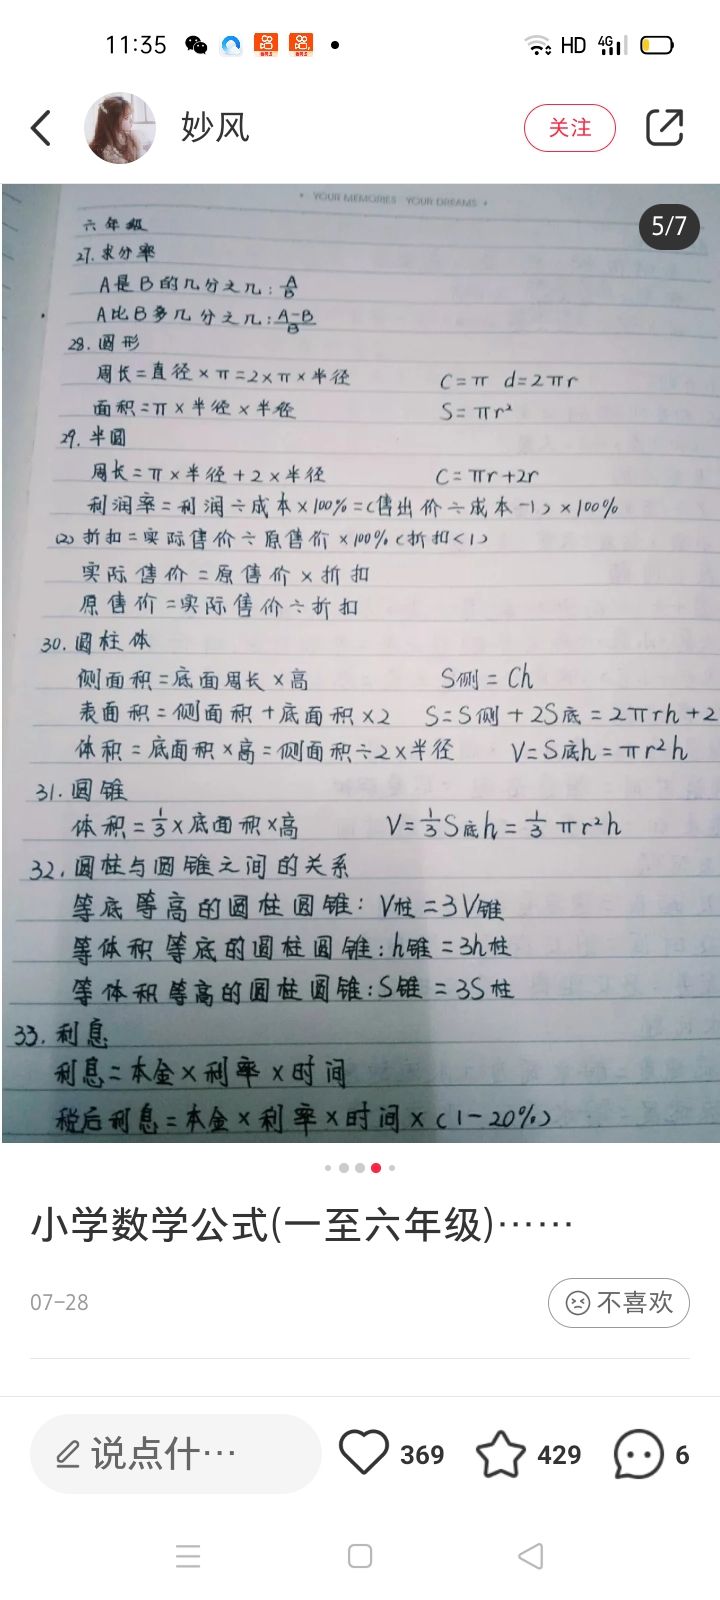 11:35 HD 4G
妙风 关注
• YOUR MEMORIES YOUR DREAMS •
5/7
六年级
27.求分率
A是B的几分之几:A/B
A比B多几分之几:A-B/B
28.圆形
周长=直径×π=2×π×半径 C=π d=2πr
面积=π×半径×半径 S=πr²
29.半圆
周长=π×半径+2×半径 C=πr+2r
利润率=利润÷成本×100%=(售出价÷成本-1)×100%
(2)折扣=实际售价÷原售价×100%(折扣<1)
实际售价=原售价×折扣
原售价=实际售价÷折扣
30.圆柱体
侧面积=底面周长×高 S侧=Ch
表面积=侧面积+底面积×2 S=S侧+2S底=2πrh+2
体积=底面积×高=侧面积÷2×半径 V=S底h=πr²h
31.圆锥
体积=1/3×底面积×高 V=1/3S底h=1/3πr²h
32.圆柱与圆锥之间的关系
等底等高的圆柱圆锥:V柱=3V锥
等体积等底的圆柱圆锥:h锥=3h柱
等体积等高的圆柱圆锥:S锥=3S柱
33.利息
利息=本金×利率×时间
税后利息=本金×利率×时间×(1-20%)
小学数学公式(一至六年级)⋯⋯
07-28
不喜欢
说点什⋯ 369 429 6